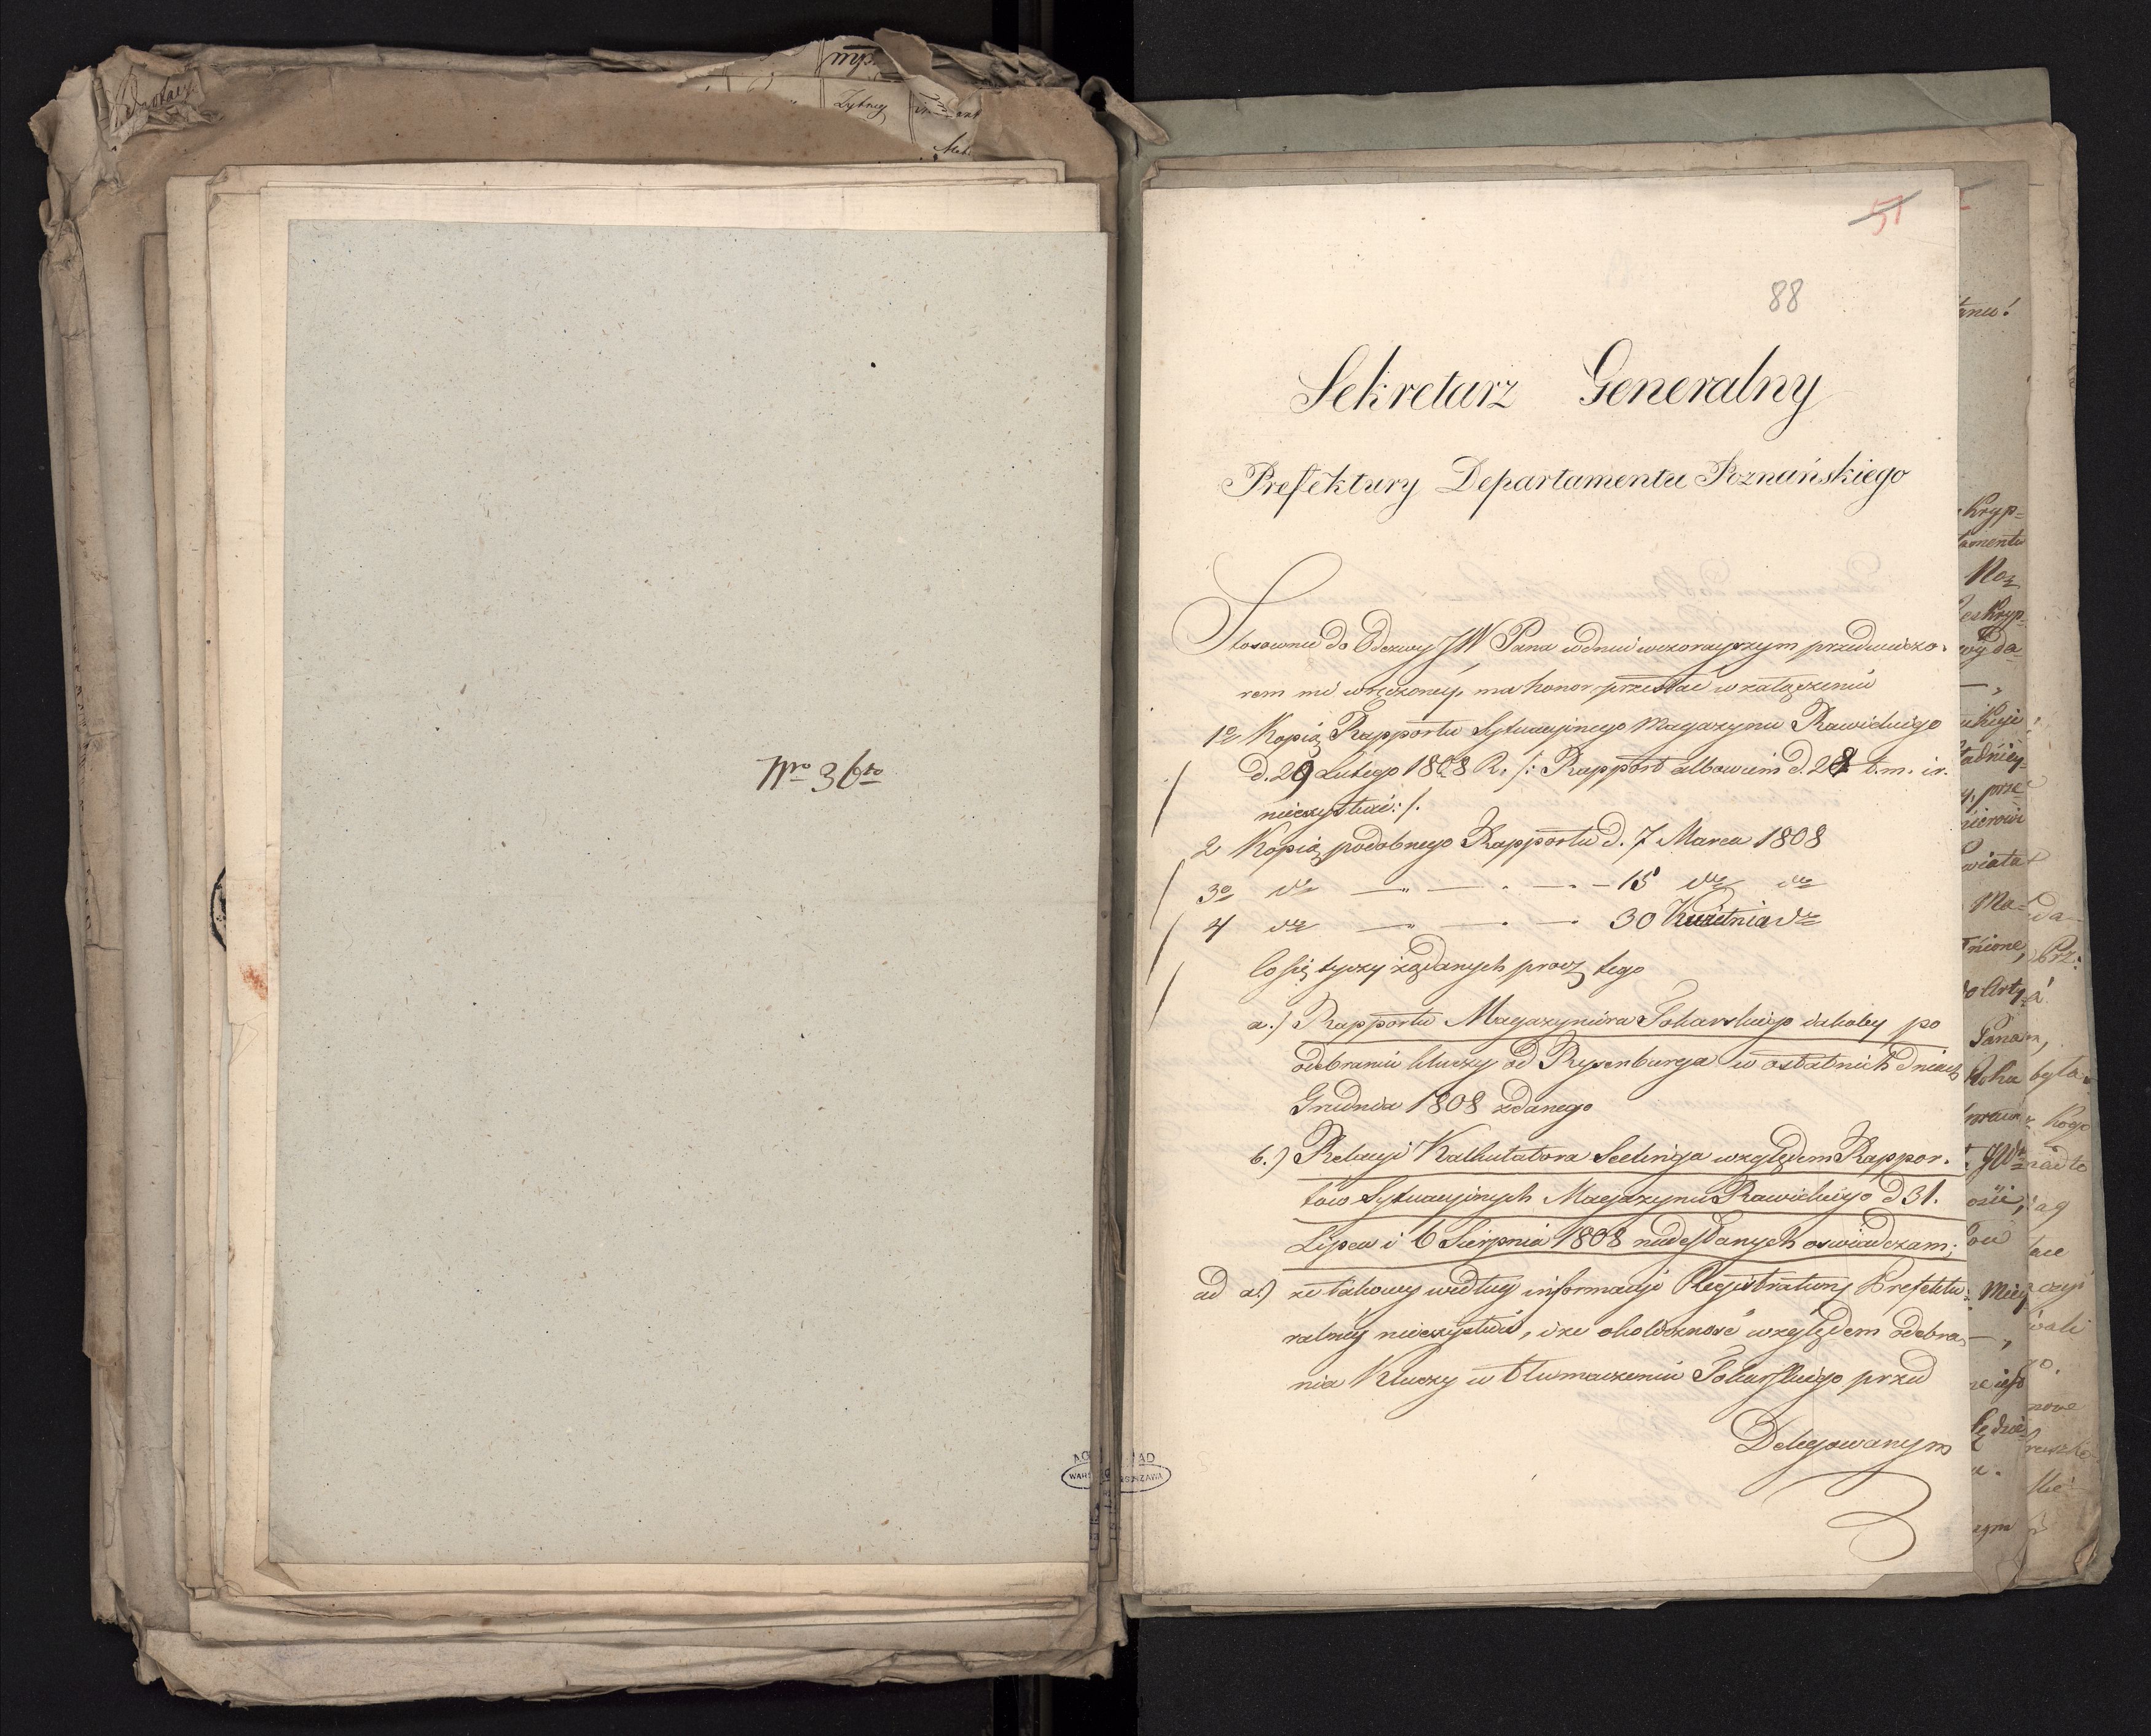 Nro 36to
51
88
Sekretarz Generalny
Prefektury Departamentu Poznańskiego
Stosownie do Odezwy JW Pana w dniu wczorayszym przedwieczo-
rem mi wręczoney, ma honor przesłać w załączeniu
1o Kopią Rapportu Sytuacyinego Magazynu Rawickiego
d. 29 Lutego 1808 R. /: Rapport albowiem d. 28 t. m. i r.
nieexystuié: /.
2 Kopią podobnego Rapportu d. 7 Marca 1808
3o dto — „ — . — . — 15 dto dto
4 dto — „ — . — . 30 Kwietnia dto
Co się tyczy żądanych procz tego
a.) Rapportu Magazyniera Tokarskiego iakoby po
odebraniu kluczy od Rysenburga w ostatnich dniach
Grudnia 1808 zdanego
b.) Relacyi Kalkulatora Seelinga względem Rappor-
tow Sytuacyinych Magazynu Rawickiego d 31.
Lipca i 6 Sierpnia 1808 nadesłanych oswiadczam;
ad a.) że takowy według informacyi Registratury Prefektu-
ralney nieexystuie, i że okoliczność względem odebra-
nia Kluczy w tłumaczeniu Tokarskiego przed
Delegowanym